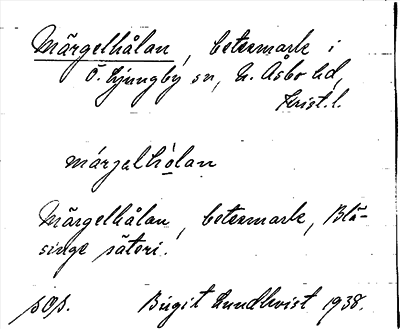 Märgelhålan, betesmark i
Ö. Ljungby sn, N. Åsbo hd,
Krist. l.
márjalhòlan
Märgelhålan, betesmark, Blä-
singe säteri.
pOp. Birgit Lundkvist 1938.